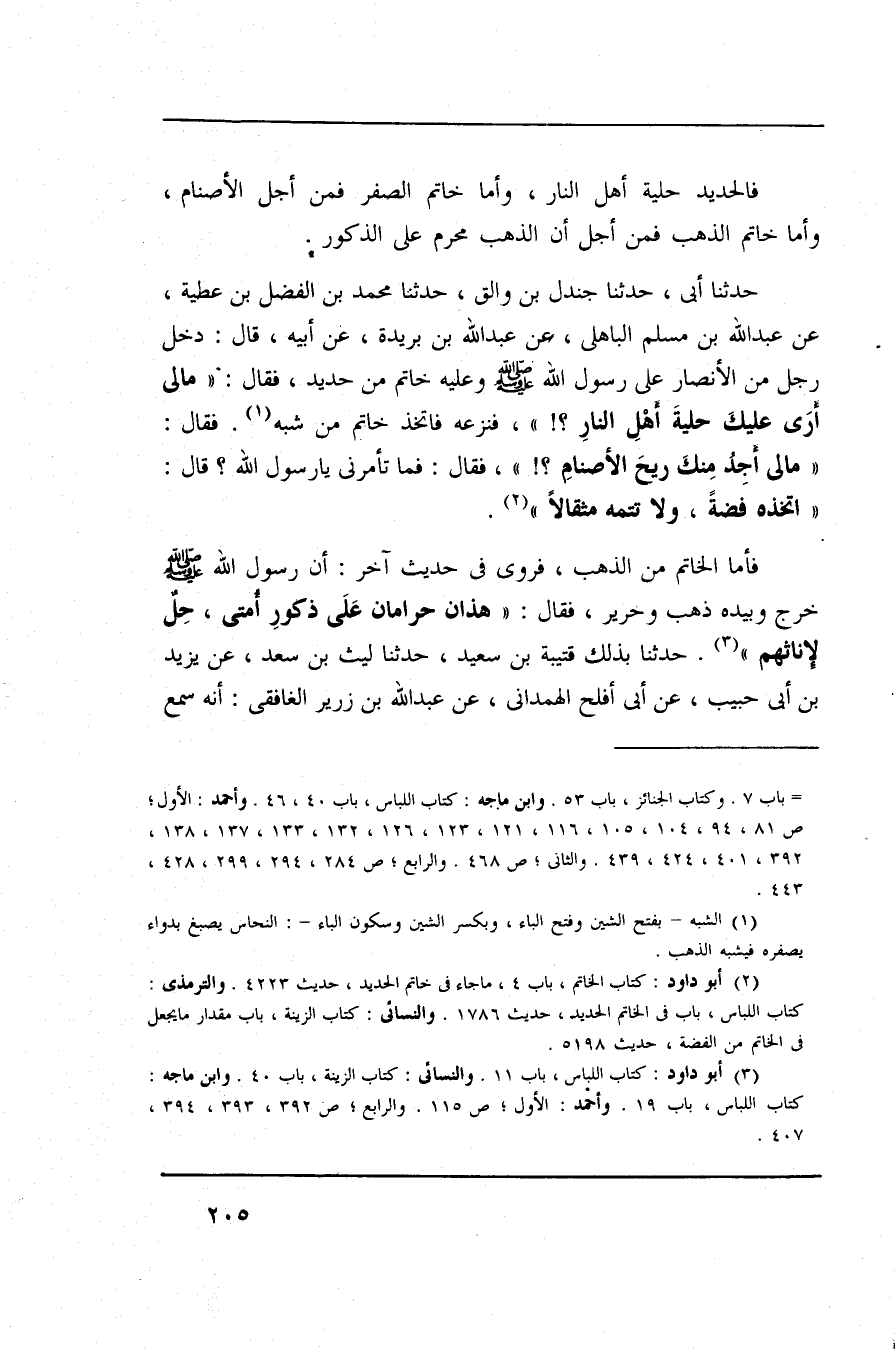 فالحديد حلية أهل النار ، وأما خاتم الصفر فمن أجل الأصنام ،
وأما خاتم الذهب فمن أجل أن الذهب محرم على الذكور .
حدثنا أبى ، حدثنا جندل بن والق ، حدثنا محمد بن الفضل بن عطية ،
عن عبدالله بن مسلم الباهلى ، عن عبدالله بن بريدة ، عن أبيه ، قال : دخل
رجل من الأنصار على رسول الله ﷺ وعليه خاتم من حديد ، فقال : « مالى
أَرَى عليكَ حليةَ أَهْلِ النارِ ؟! » ، فنزعه فاتخذ خاتم من شبه(١) . فقال :
« مالى أَجِدُ مِنكَ ريحَ الأصنامِ ؟! » ، فقال : فما تأمرنى يارسول الله ؟ قال :
« اتخذه فضةً ، ولا تتمه مثقالاً »(٢) .
فأما الخاتم من الذهب ، فروى فى حديث آخر : أن رسول الله ﷺ
خرج وبيده ذهب وحرير ، فقال : « هذان حرامان عَلَى ذكورِ أُمتى ، حِلٌ
لإِناثهم »(٣) . حدثنا بذلك قتيبة بن سعيد ، حدثنا ليث بن سعد ، عن يزيد
بن أبى حبيب ، عن أبى أفلح الهمدانى ، عن عبدالله بن زرير الغافقى : أنه سمع
= باب ٧ . وكتاب الجنائز ، باب ٥٣ . وابن ماجه : كتاب اللباس ، باب ٤٠ ، ٤٦ . وأحمد : الأول ؛
ص ٨١ ، ٩٤ ، ١٠٤ ، ١٠٥ ، ١١٦ ، ١٢١ ، ١٢٣ ، ١٢٦ ، ١٣٢ ، ١٣٣ ، ١٣٧ ، ١٣٨ ،
٣٩٢ ، ٤٠١ ، ٤٢٤ ، ٤٣٩ . والثانى ؛ ص ٤٦٨ . والرابع ؛ ص ٢٨٤ ، ٢٩٤ ، ٢٩٩ ، ٤٢٨ ،
٤٤٣ .
(١) الشبه – بفتح الشين وفتح الباء ، وبكسر الشين وسكون الباء – : النحاس يصبغ بدواء
يصفره فيشبه الذهب .
(٢) أبو داود : كتاب الخاتم ، باب ٤ ، ماجاء فى خاتم الحديد ، حديث ٤٢٢٣ . والترمذى :
كتاب اللباس ، باب فى الخاتم الحديد ، حديث ١٧٨٦ . والنسائى : كتاب الزينة ، باب مقدار مايجعل
فى الخاتم من الفضة ، حديث ٥١٩٨ .
(٣) أبو داود : كتاب اللباس ، باب ١١ . والنسائى : كتاب الزينة ، باب ٤٠ . وابن ماجه :
كتاب اللباس ، باب ١٩ . وأحمد : الأول ؛ ص ١١٥ . والرابع ؛ ص ٣٩٢ ، ٣٩٣ ، ٣٩٤ ،
٤٠٧ .
٢٠٥